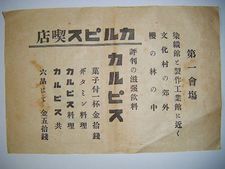 第一會場
染織館と製作工業館に近く
文化村の郊外
櫻の林の中
評判の滋强飲料
カルピス
カルピス喫店
菓子付一杯金拾錢
ギタミン料理
カルピス料理
カルピス共
六品以上金五拾錢